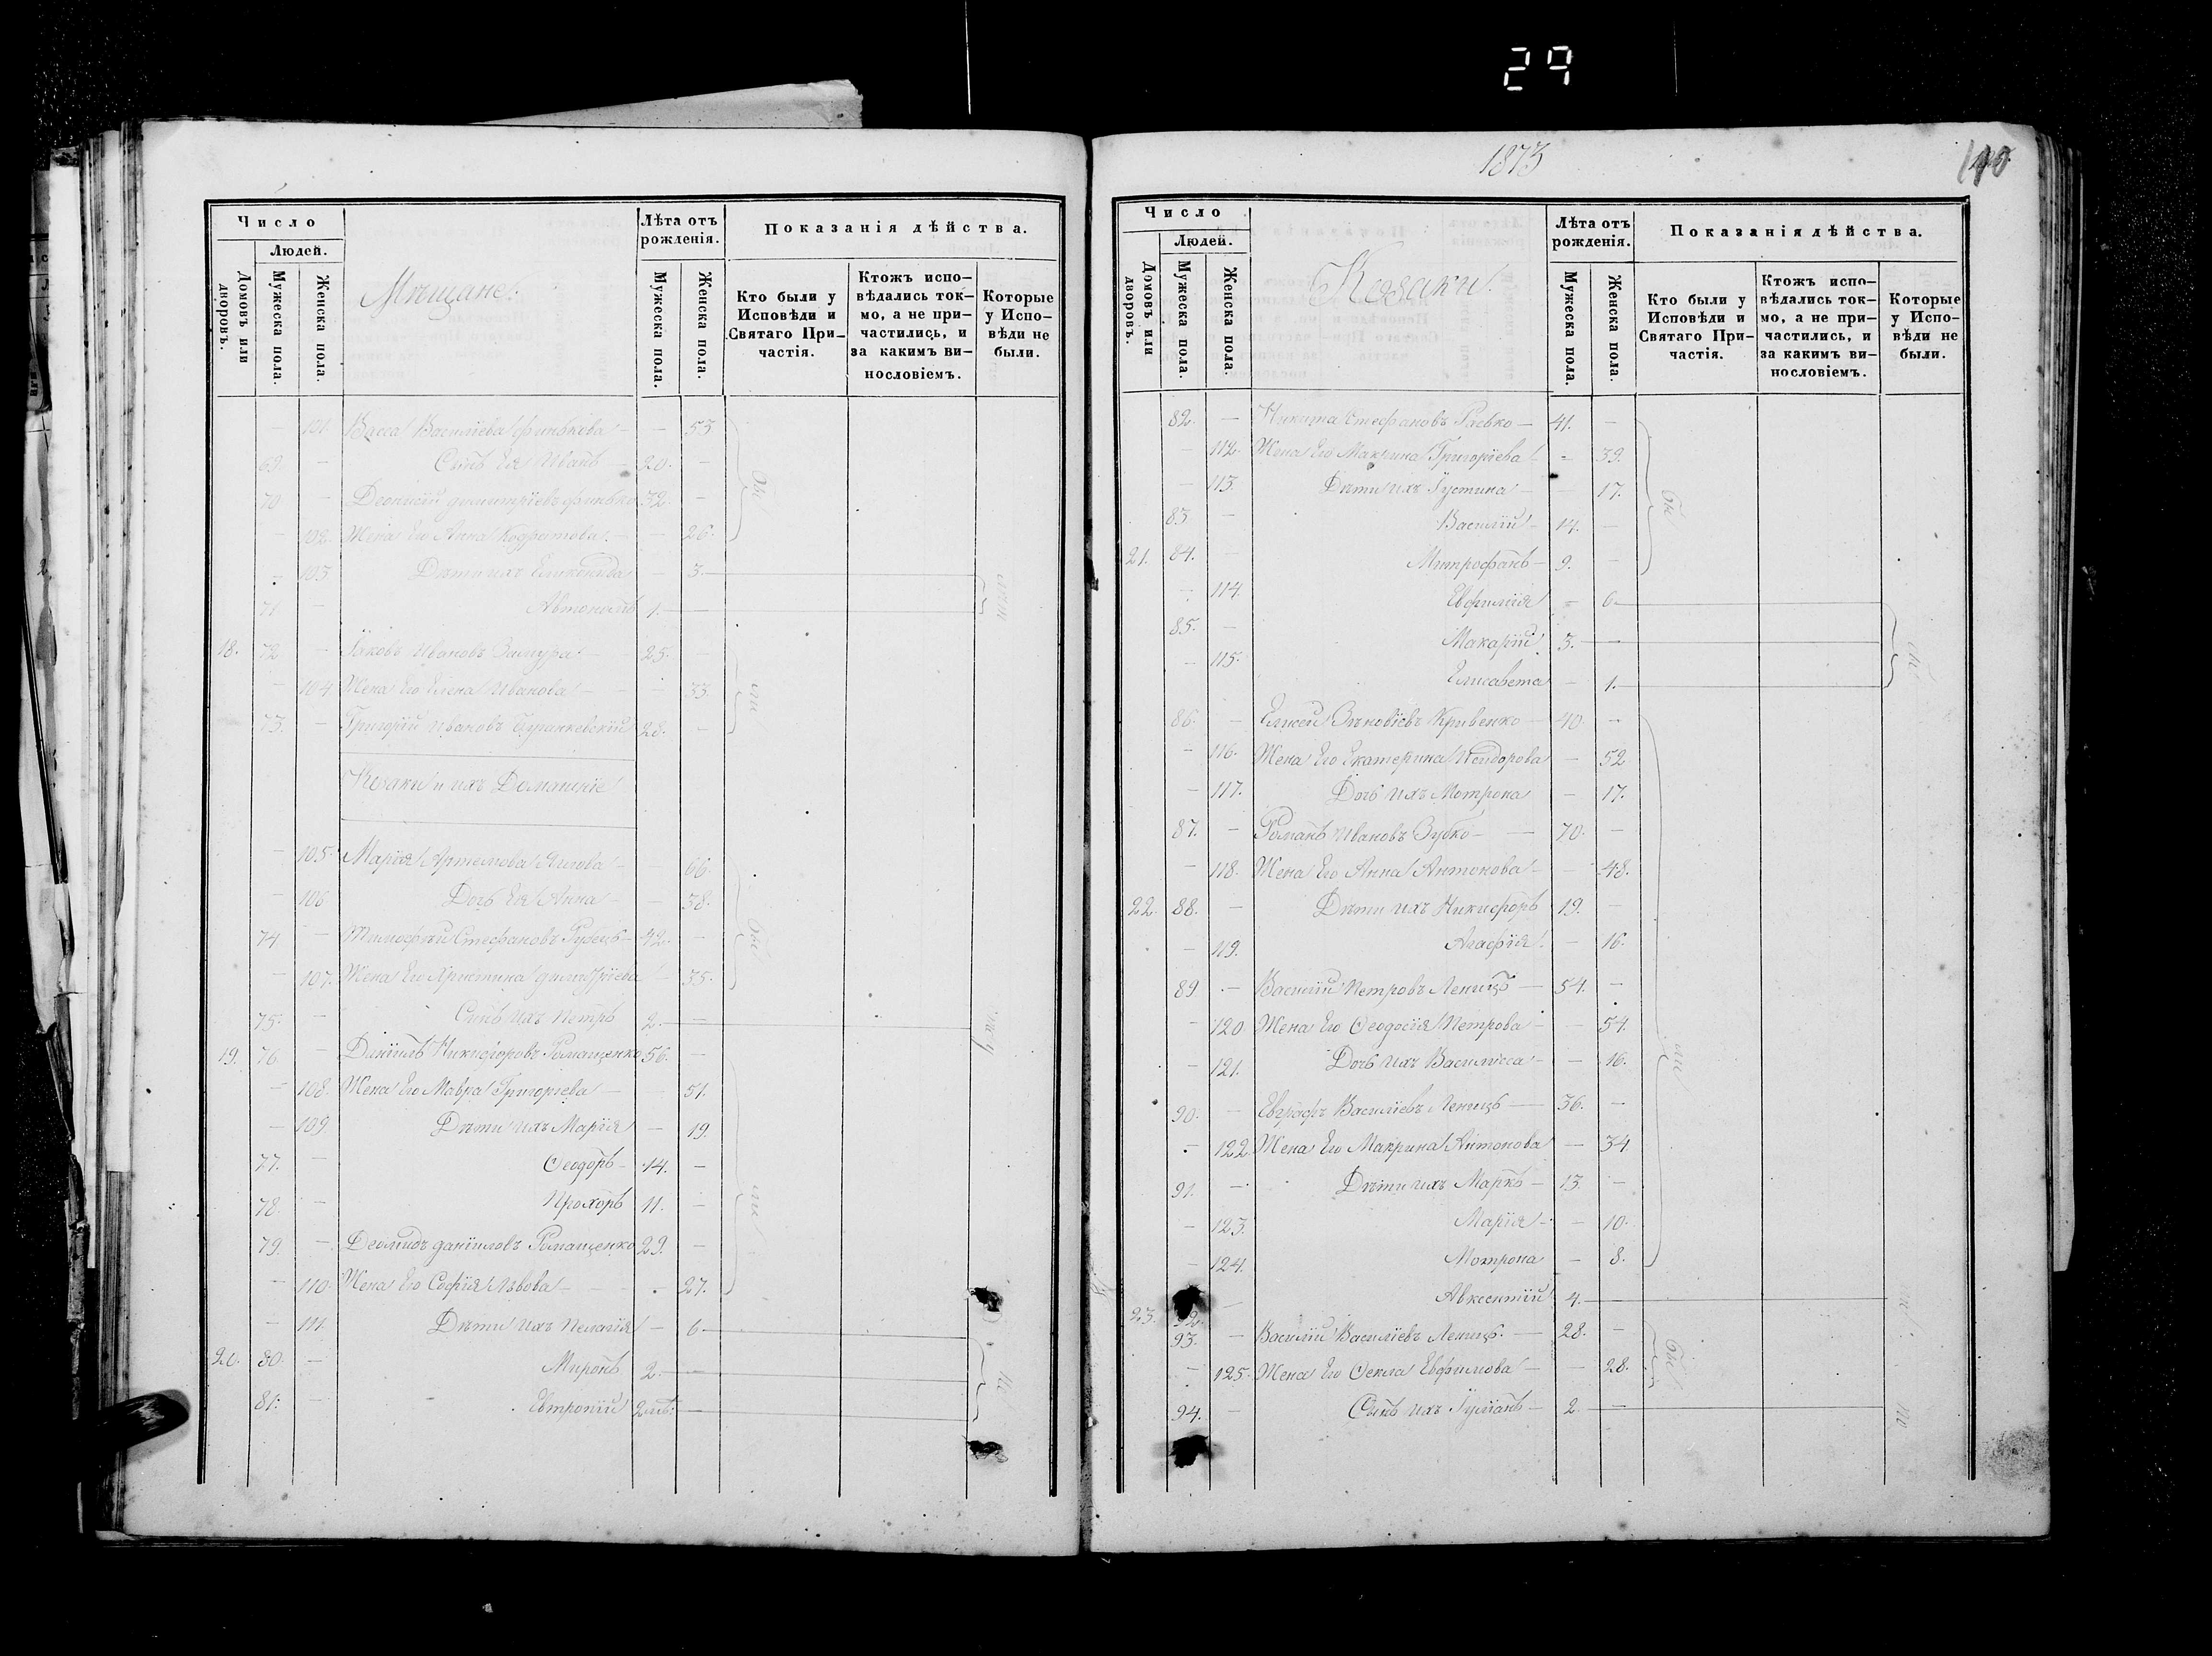 29
Число
Людей.
Домовъ или дворовъ.
Мужеска пола.
Женска пола.
Мѣщане.
Лѣта отъ рожденія.
Мужеска пола.
Женска пола.
Показанія дѣйства.
Кто были у Исповѣди и Святаго Причастія.
Ктожъ исповѣдались токмо, а не причастились, и за какимъ винословіемъ.
Которые у Исповѣди не были.
— 101. Васса Василіева Финькова — — 53
69. — Сынъ Ея Иванъ — 20. —
70 — Деонисій Димитріевъ Финько 32. —
— 102. Жена Его Анна Кодратова — — 26.
— 103 Дѣти ихъ — 3.
71 — Автономъ 1. —
18. 72 — Іаковъ Ивановъ 25. —
— 104 Жена Его Елена Иванова — — 33.
73. — Григорій Ивановъ 28. —
Козаки и ихъ Домашніе
— 105. Марія Артемова — 66.
— 106 Дочь Ея Анна — — 38.
74 — Тимофѣй Стефановъ Рубецъ — 42. —
— 107. Жена Его Христина Димитріева — 35.
75. — Сынъ ихъ Петръ 2. —
19. 76 — Даніилъ Никифоровъ Ромащенко 56. —
— 108. Жена Его Мавра Григоріева — — 51.
— 109 Дѣти ихъ Марія — 19.
77. — Ѳеодоръ — 14. —
78. — Прохоръ 11. —
79. — Деомидъ Даніиловъ Ромащенко 29. —
— 110. Жена Его Софія Львова — — 27.
— 111. Дѣти ихъ Пелагія — 6
20. 80. — Миронъ 2. —
81. — Евтропій 2 —
1873
Число
Людей.
Домовъ или дворовъ.
Мужеска пола.
Женска пола.
Козаки.
Лѣта отъ рожденія.
Мужеска пола.
Женска пола.
Показанія дѣйства.
Кто были у Исповѣди и Святаго Причастія.
Ктожъ исповѣдались токмо, а не причастились, и за какимъ винословіемъ.
Которые у Исповѣди не были.
82. — Никита Стефановъ — 41. —
— 112. Жена Его Макрина Григоріева — 39.
— 113. Дѣти ихъ Іустина — — 17.
83 — Василій — 14. —
21. 84. — Митрофанъ — 9. —
— 114 Евфимія — 6
85. — Макарій 3. —
— 115. Елисавета — 1.
86. — Елисей Зѣновіевъ Кривенко — 40. —
— 116. Жена Его Екатерина Исидорова — 52
— 117. Дочь ихъ Мотрона — 17.
87. — Романъ Ивановъ Зубко — 70. —
— 118. Жена Его Анна Антонова — — 48.
22. 88. — Дѣти ихъ Никифоръ 19. —
— 119. Агафія — 16.
89 — Василій Петровъ Леницъ — 54. —
— 120 Жена Его Ѳеодосія Петрова — — 54.
— 121. Дочь ихъ Василисса — — 16.
90. — Евграфъ Василіевъ Леницъ — 36. —
— 122. Жена Его Макрина Антонова — 34
91. — Дѣти ихъ Марко — 13. —
— 123. Марія — — 10.
— 124. Мотрона — 8.
23. 92. — Авксентій 4. —
93. — Василій Василіевъ Леницъ. — 28. —
— 125. Жена Его Ѳекла Евфимова — — 28.
94. — Сынъ ихъ Іуліанъ — 2. —